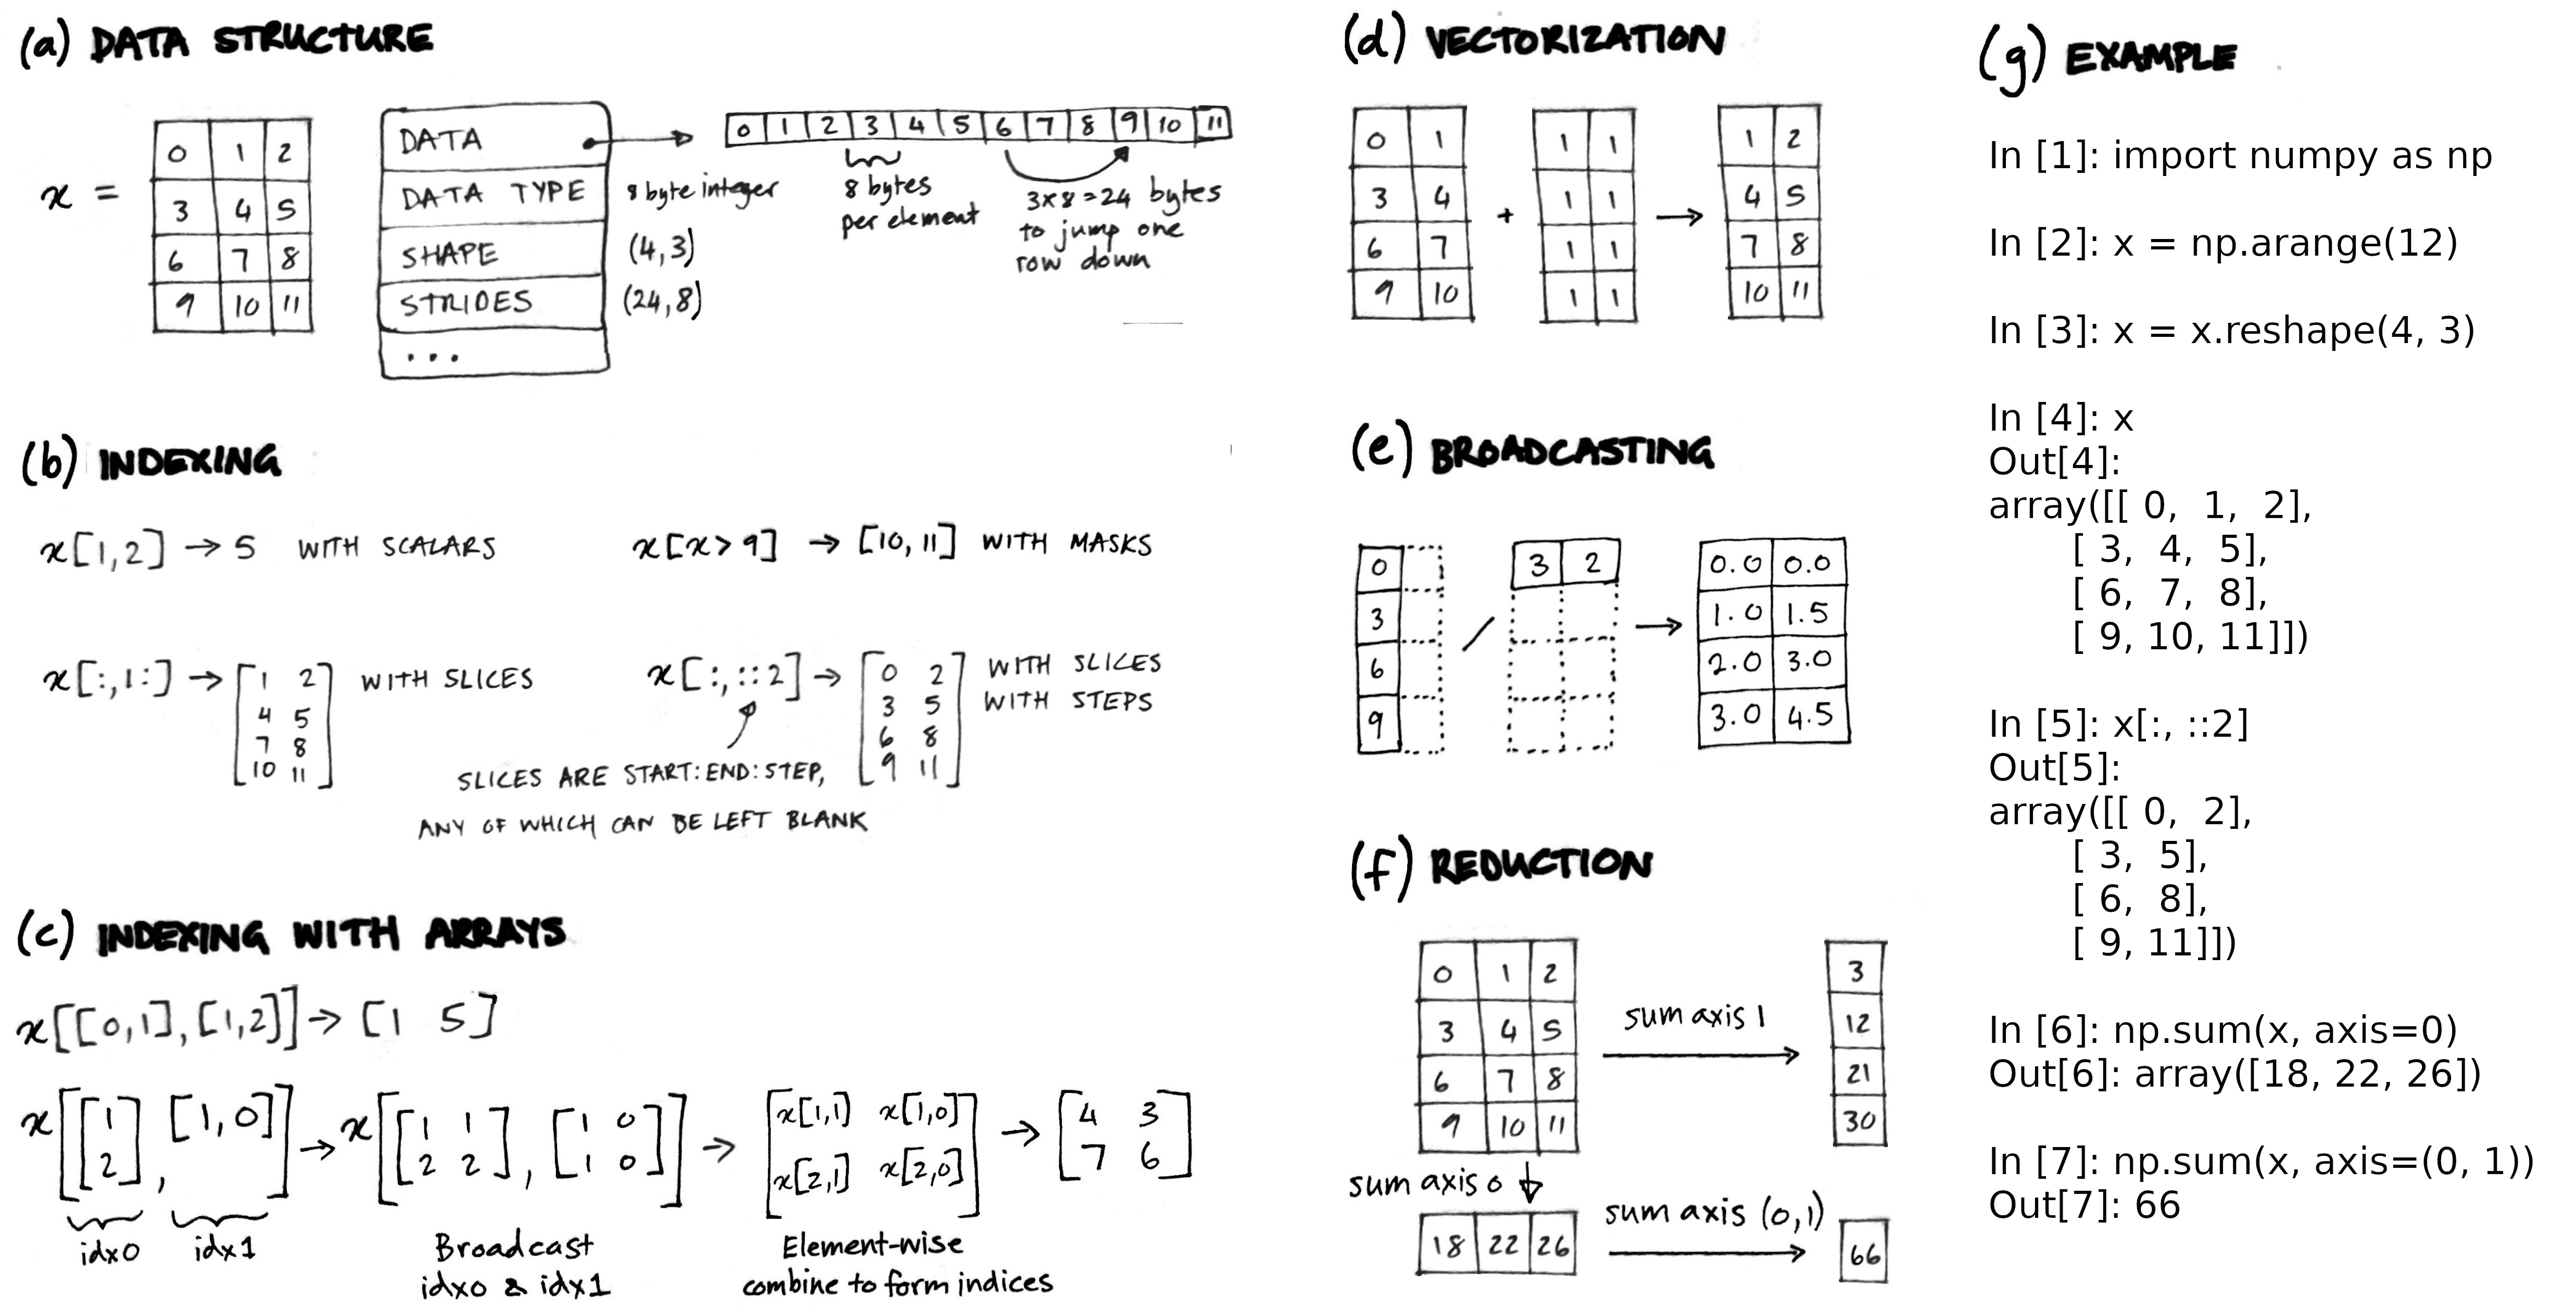 (a) DATA STRUCTURE
x =
0 1 2
3 4 5
6 7 8
9 10 11
DATA
DATA TYPE
SHAPE
STRIDES
...
8 byte integer
(4,3)
(24,8)
0 1 2 3 4 5 6 7 8 9 10 11
8 bytes
per element
3x8=24 bytes
to jump one
row down
(b) INDEXING
x[1,2] → 5 WITH SCALARS
x[x>9] → [10,11] WITH MASKS
x[:,1:] → WITH SLICES
1 2
4 5
7 8
10 11
x[:,::2] →
0 2
3 5
6 8
9 11
WITH SLICES
WITH STEPS
SLICES ARE START:END:STEP,
ANY OF WHICH CAN BE LEFT BLANK
(c) INDEXING WITH ARRAYS
x[[0,1],[1,2]] → [1 5]
x[[1 2], [1,0]] → x[[1 1 2 2], [1 0 1 0]] →
x[1,1] x[1,0]
x[2,1] x[2,0]
→
4 3
7 6
idx0 idx1
Broadcast
idx0 & idx1
Element-wise
combine to form indices
(d) VECTORIZATION
0 1
3 4
6 7
9 10
+
1 1
1 1
1 1
1 1
→
1 2
4 5
7 8
10 11
(e) BROADCASTING
0
3
6
9
/
3 2
→
0.0 0.0
1.0 1.5
2.0 3.0
3.0 4.5
(f) REDUCTION
0 1 2
3 4 5
6 7 8
9 10 11
sum axis 1
3
12
21
30
sum axis 0
18 22 26
sum axis (0,1)
66
(g) EXAMPLE
In [1]: import numpy as np
In [2]: x = np.arange(12)
In [3]: x = x.reshape(4, 3)
In [4]: x
Out[4]:
array([[ 0, 1, 2],
[ 3, 4, 5],
[ 6, 7, 8],
[ 9, 10, 11]])
In [5]: x[:, ::2]
Out[5]:
array([[ 0, 2],
[ 3, 5],
[ 6, 8],
[ 9, 11]])
In [6]: np.sum(x, axis=0)
Out[6]: array([18, 22, 26])
In [7]: np.sum(x, axis=(0, 1))
Out[7]: 66